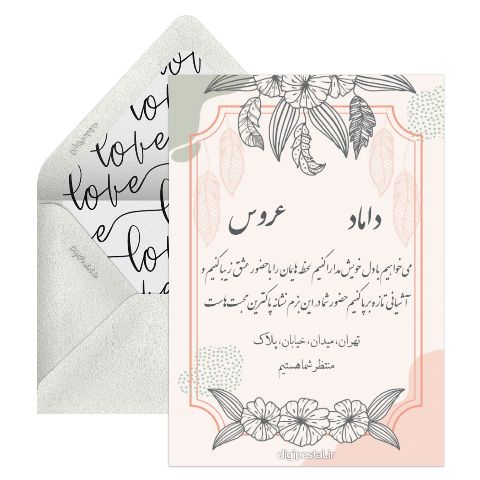 love
love
love
داماد عروس
می‌خواهیم با دل خویش مدارا کنیم لحظه هایمان را با حضور عشق زیبا کنیم و
آشیانی تازه برپا کنیم حضور شما در این بزم نشانه پاکترین محبت هاست
تهران، میدان، خیابان، پلاک
منتظر شما هستیم
digipostal.ir